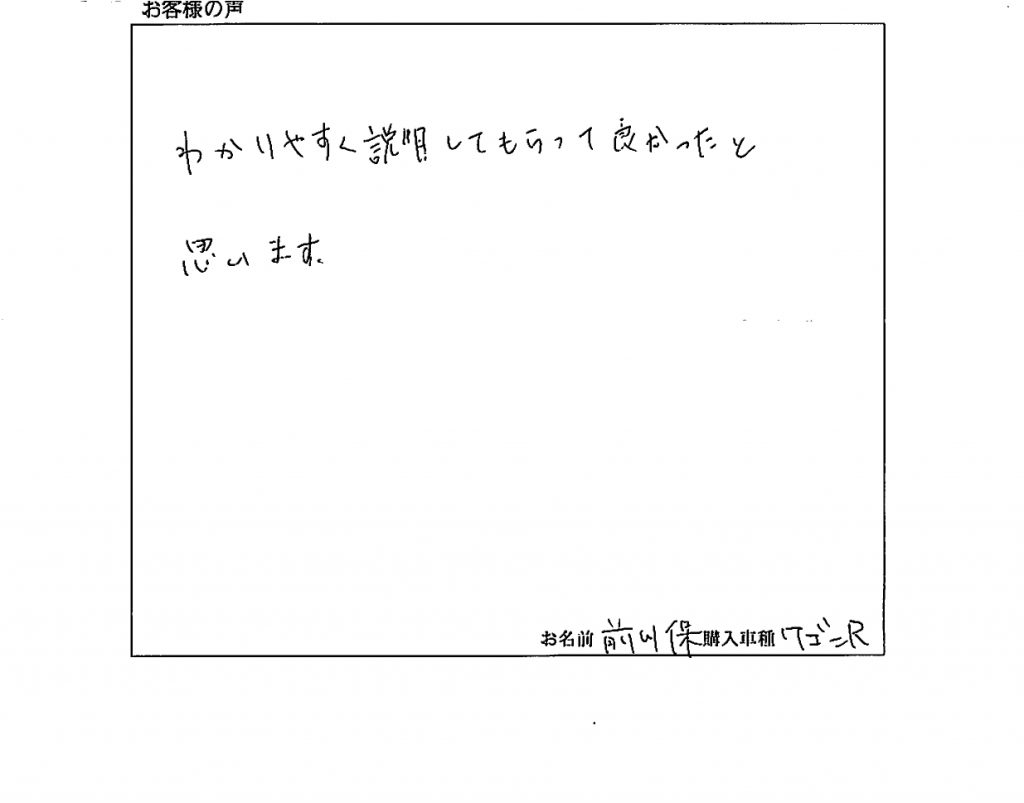 お客様の声
わかりやすく説明してもらって良かったと
思います。
お名前 前川保 購入車種 ワゴンR